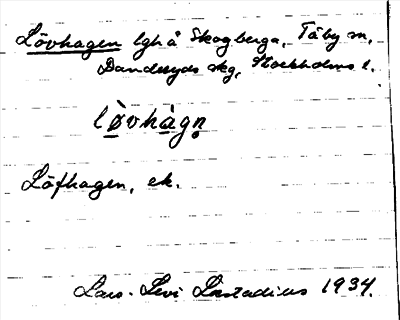 Lövhagen lgh å Skogberga, Täby sn,
Danderyds skg, Stockholms l.
lø̀vhàgn̥
Löfhagen, ek.
Lars-Levi Læstadius 1934.